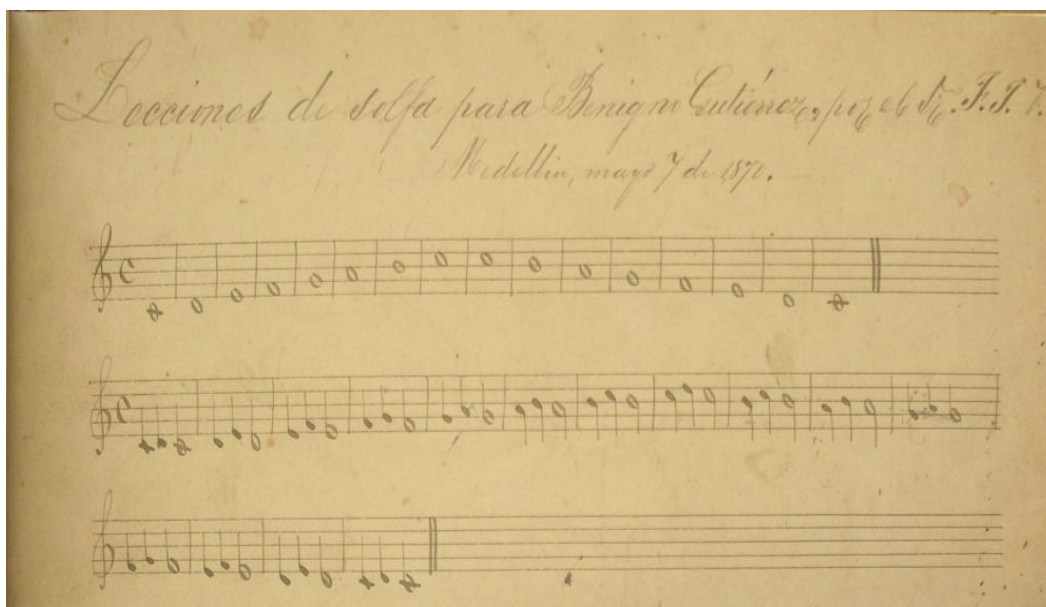 Lecciones de solfa para Benigno Gutiérrez, por el Sr. F. J. V.
Medellin, mayo 7 de 1870.